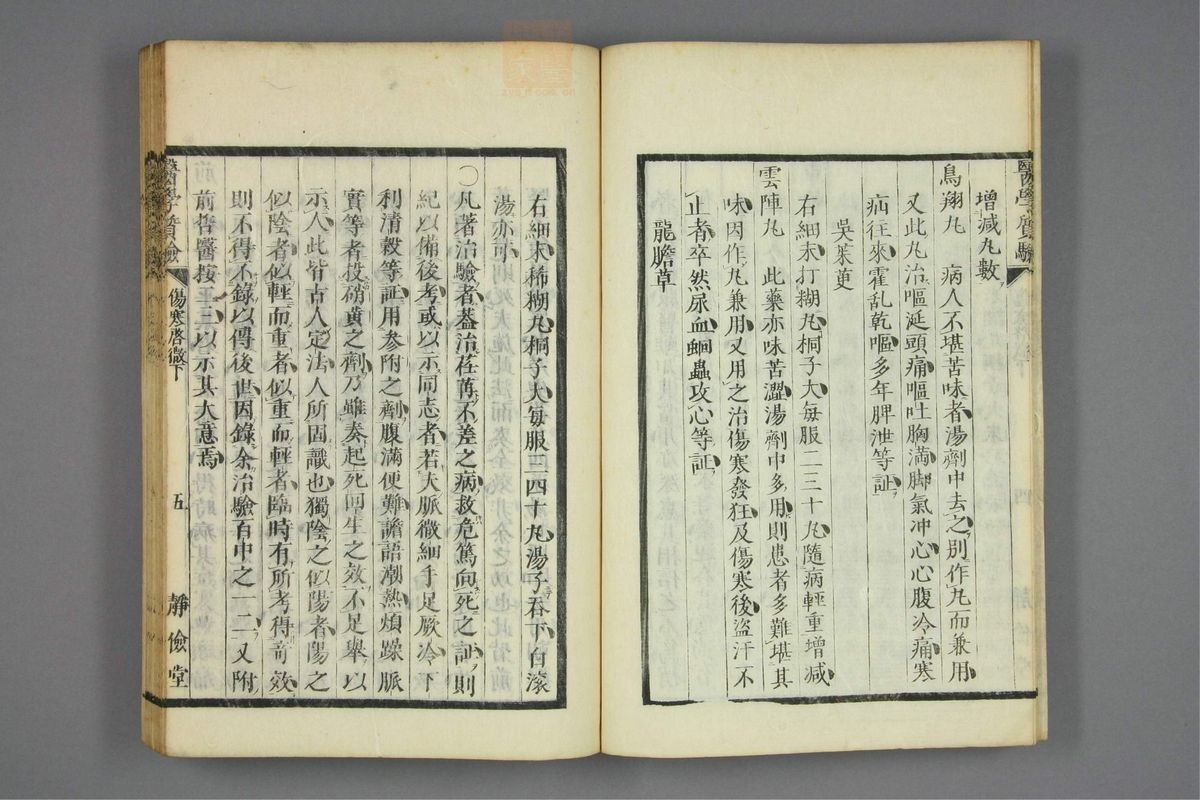 增減丸數
鳥翔丸　病人不堪苦味者湯劑中去之別作丸而兼用
又此丸治嘔涎頭痛嘔吐胸滿脚氣冲心心腹冷痛寒
疝往來霍乱乾嘔多年脾泄等証
吳茱萸
右細末打糊丸桐子大每服二三十丸隨病輕重增減
雲陣丸　此藥亦味苦澀湯劑中多用則患者多難堪其
味因作丸兼用又用之治傷寒發狂及傷寒後盜汗不
止者卒然尿血蛔蟲攻心等証
龍膽草
醫學質驗
右細末稀糊丸桐子大每服三四十丸湯子吞下白滾
湯亦可
〇凡著治驗者蓋治荏苒不差之病救危篤向死之証則
紀以備後考或以示同志者若夫脈微細手足厥冷下
利清穀等証用参附之劑腹滿便難譫語潮熱煩躁脈
實等者投硝黃之劑乃雖奏起死回生之效不足舉以
示人此皆古人定法人所固識也獨陰之似陽者陽之
似陰者似輕而重者似重而輕者臨時有所考得奇效
則不得不錄以傳後世因錄余治驗百中之一二又附
前哲醫按二三以示其大意焉
醫學質驗　傷寒啓微下　五　靜儉堂